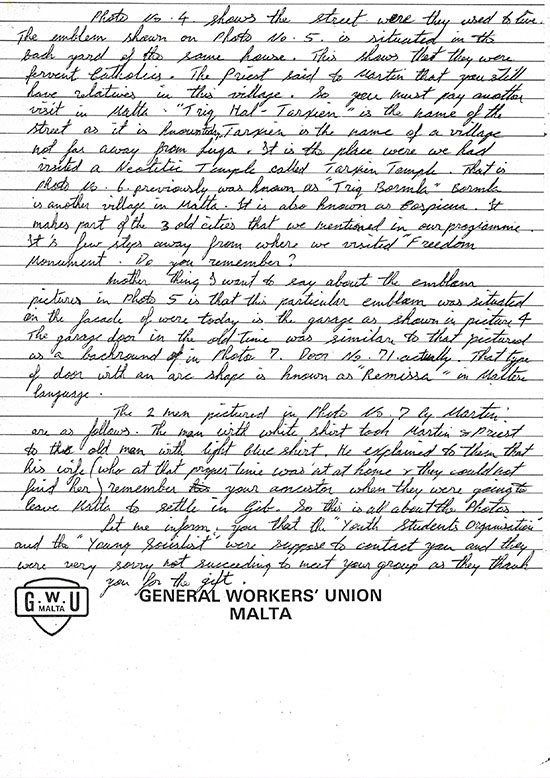 Photo No. 4 shows the street were they used to live.
The emblem shown on Photo No. 5. is situated in the
back yard of the same house. This shows that they were
fervent Catholics. The Priest said to Martin that you still
have relatives in this village. So you must pay another
visit in Malta. "Triq Hal-Tarxien" is the name of the
street as it is known today, Tarxien is the name of a village
not far away from Luqa. It is the place were we had
visited a Neolitic Temple called Tarxien Temple. That is
Photo No. 6. previously was known as "Triq Bormla" Bormla
is another village in Malta. It is also known as Cospicua. It
makes part of the 3 old cities that we mentioned in our programme.
It is few steps away from where we visited "Freedom
Monument. Do you remember?
Another thing I want to say about the emblem
pictures in Photo 5 is that this particular emblem was situated
on the facade of were today is the garage as shown in picture 4
The garage door in the old time was similar to that pictured
as a backround of in Photo 7. Door No. 71 actually. That type
of door with an arc shape is known as "Remissa" in Maltese
language.
The 2 men pictured in Photo No. 7 by Martin:
are as follows. The man with white shirt took Martin & Priest
to the old man with light blue shirt. He explained to them that
his wife (who at that proper time was at at home & they could not
find her) remember his your ancestor when they were going to
leave Malta to settle in Gib. So this is all about the Photos
Let me inform you that the "Youth Students Organisation"
and the "Young Socialist" were suppose to contact you and they
were very sorry not succeeding to meet your group as they thank
you for the gift.
G.W.U
MALTA
GENERAL WORKERS' UNION
MALTA